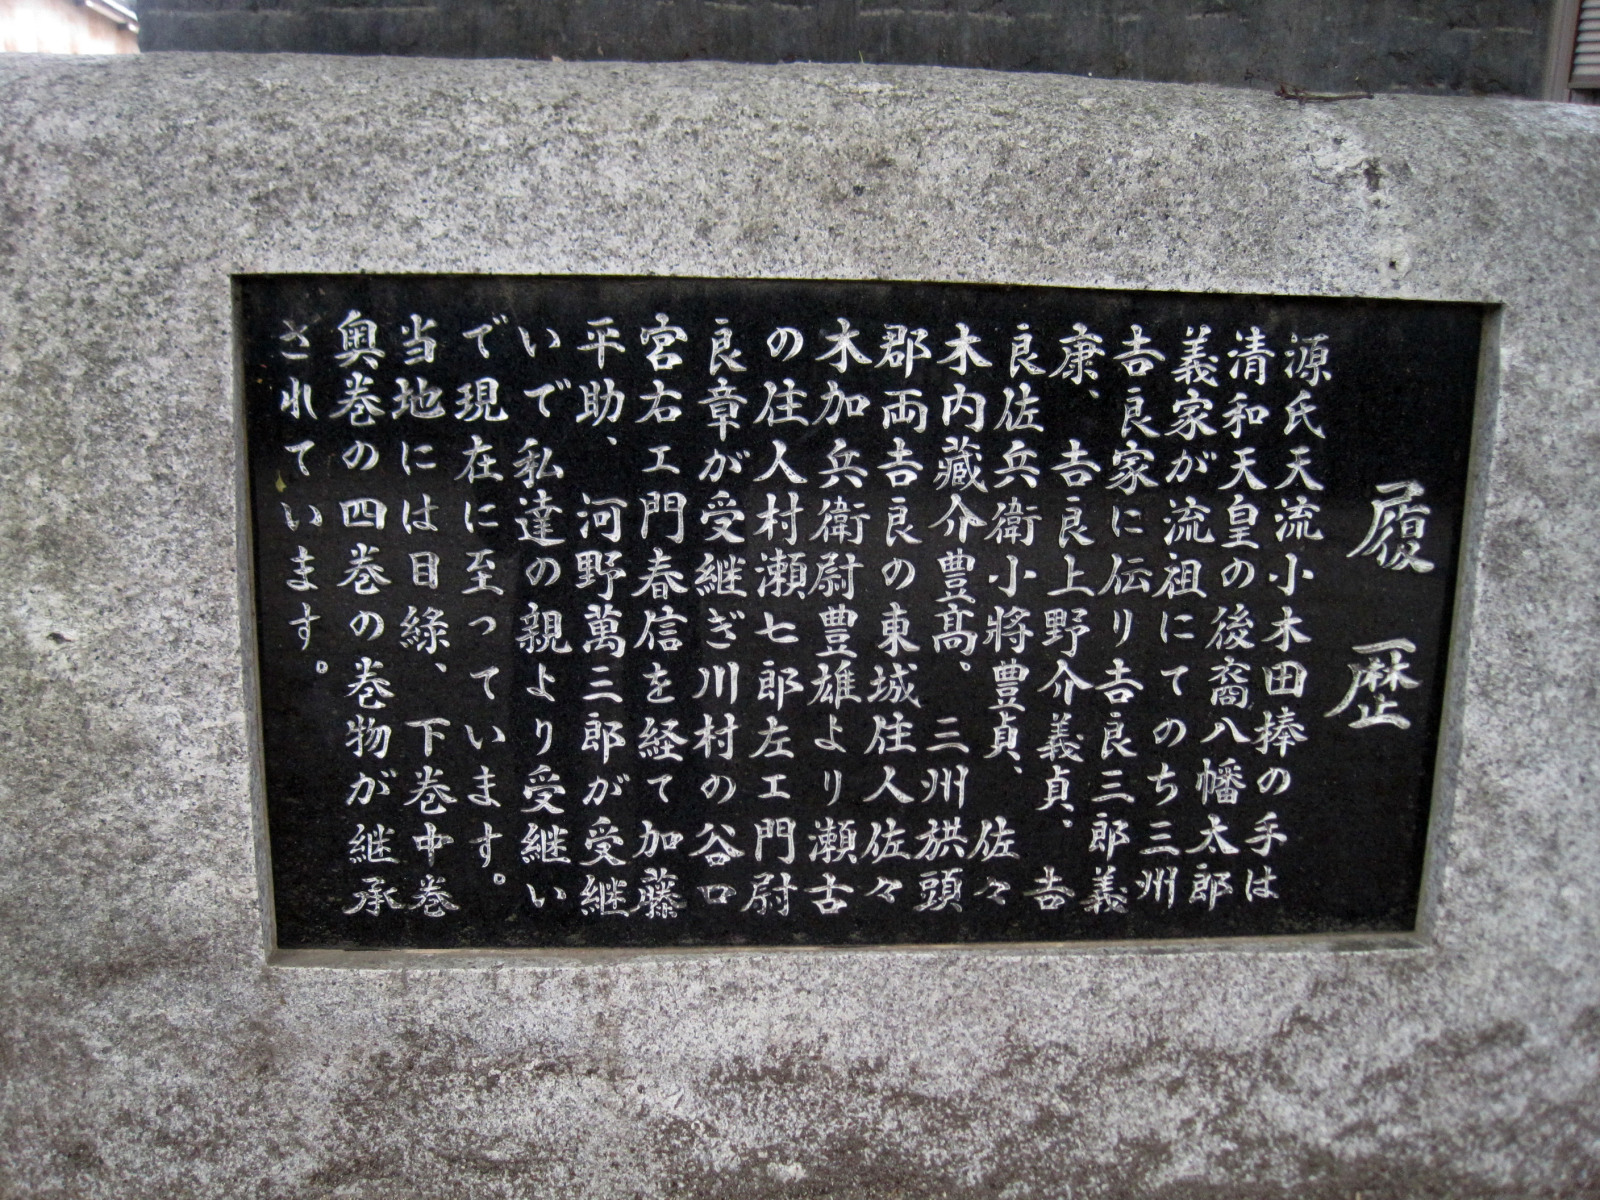 履歴
源氏天流小木田棒の手は
清和天皇の後裔八幡太郎
義家が流祖にてのち三州
𠮷良家に伝り𠮷良三郎義
康、𠮷良上野介義貞、𠮷
良佐兵衛小将豊貞、佐々
木内藏介豊髙。三州栱頭
郡両𠮷良の東城住人佐々
木加兵衛尉豊雄より瀬古
の住人村瀬七郎左ェ門尉
良章が受継ぎ川村の谷口
宮右ェ門春信を経て加藤
平助、河野萬三郎が受継
いで私達の親より受継い
で現在に至っています。
当地には目緑、下巻中巻
奥巻の四巻の巻物が継承
されています。